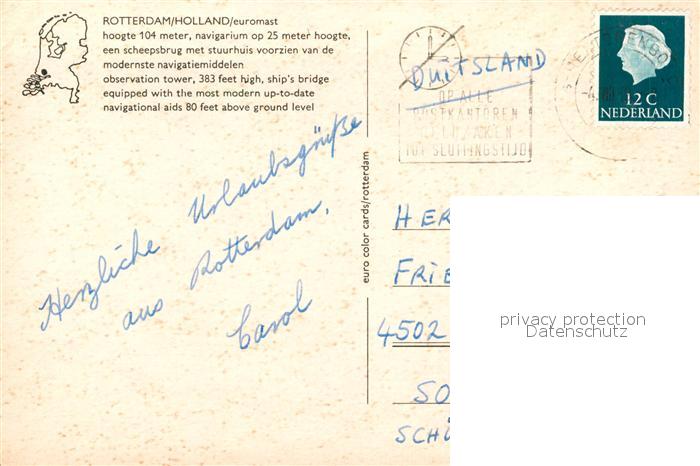 ROTTERDAM/HOLLAND/euromast
hoogte 104 meter, navigarium op 25 meter hoogte,
een scheepsbrug met stuurhuis voorzien van de
modernste navigatiemiddelen
observation tower, 383 feet high, ship's bridge
equipped with the most modern up-to-date
navigational aids 80 feet above ground level
Herzliche Urlaubsgrüße
aus Rotterdam,
Carol
euro color cards/rotterdam
DUITSLAND
OP ALLE
POSTKANTOREN
TOT SLUITINGSTIJD
12 C
NEDERLAND
HER
FRIE
4502
SO
SCHÜ
privacy protection
Datenschutz